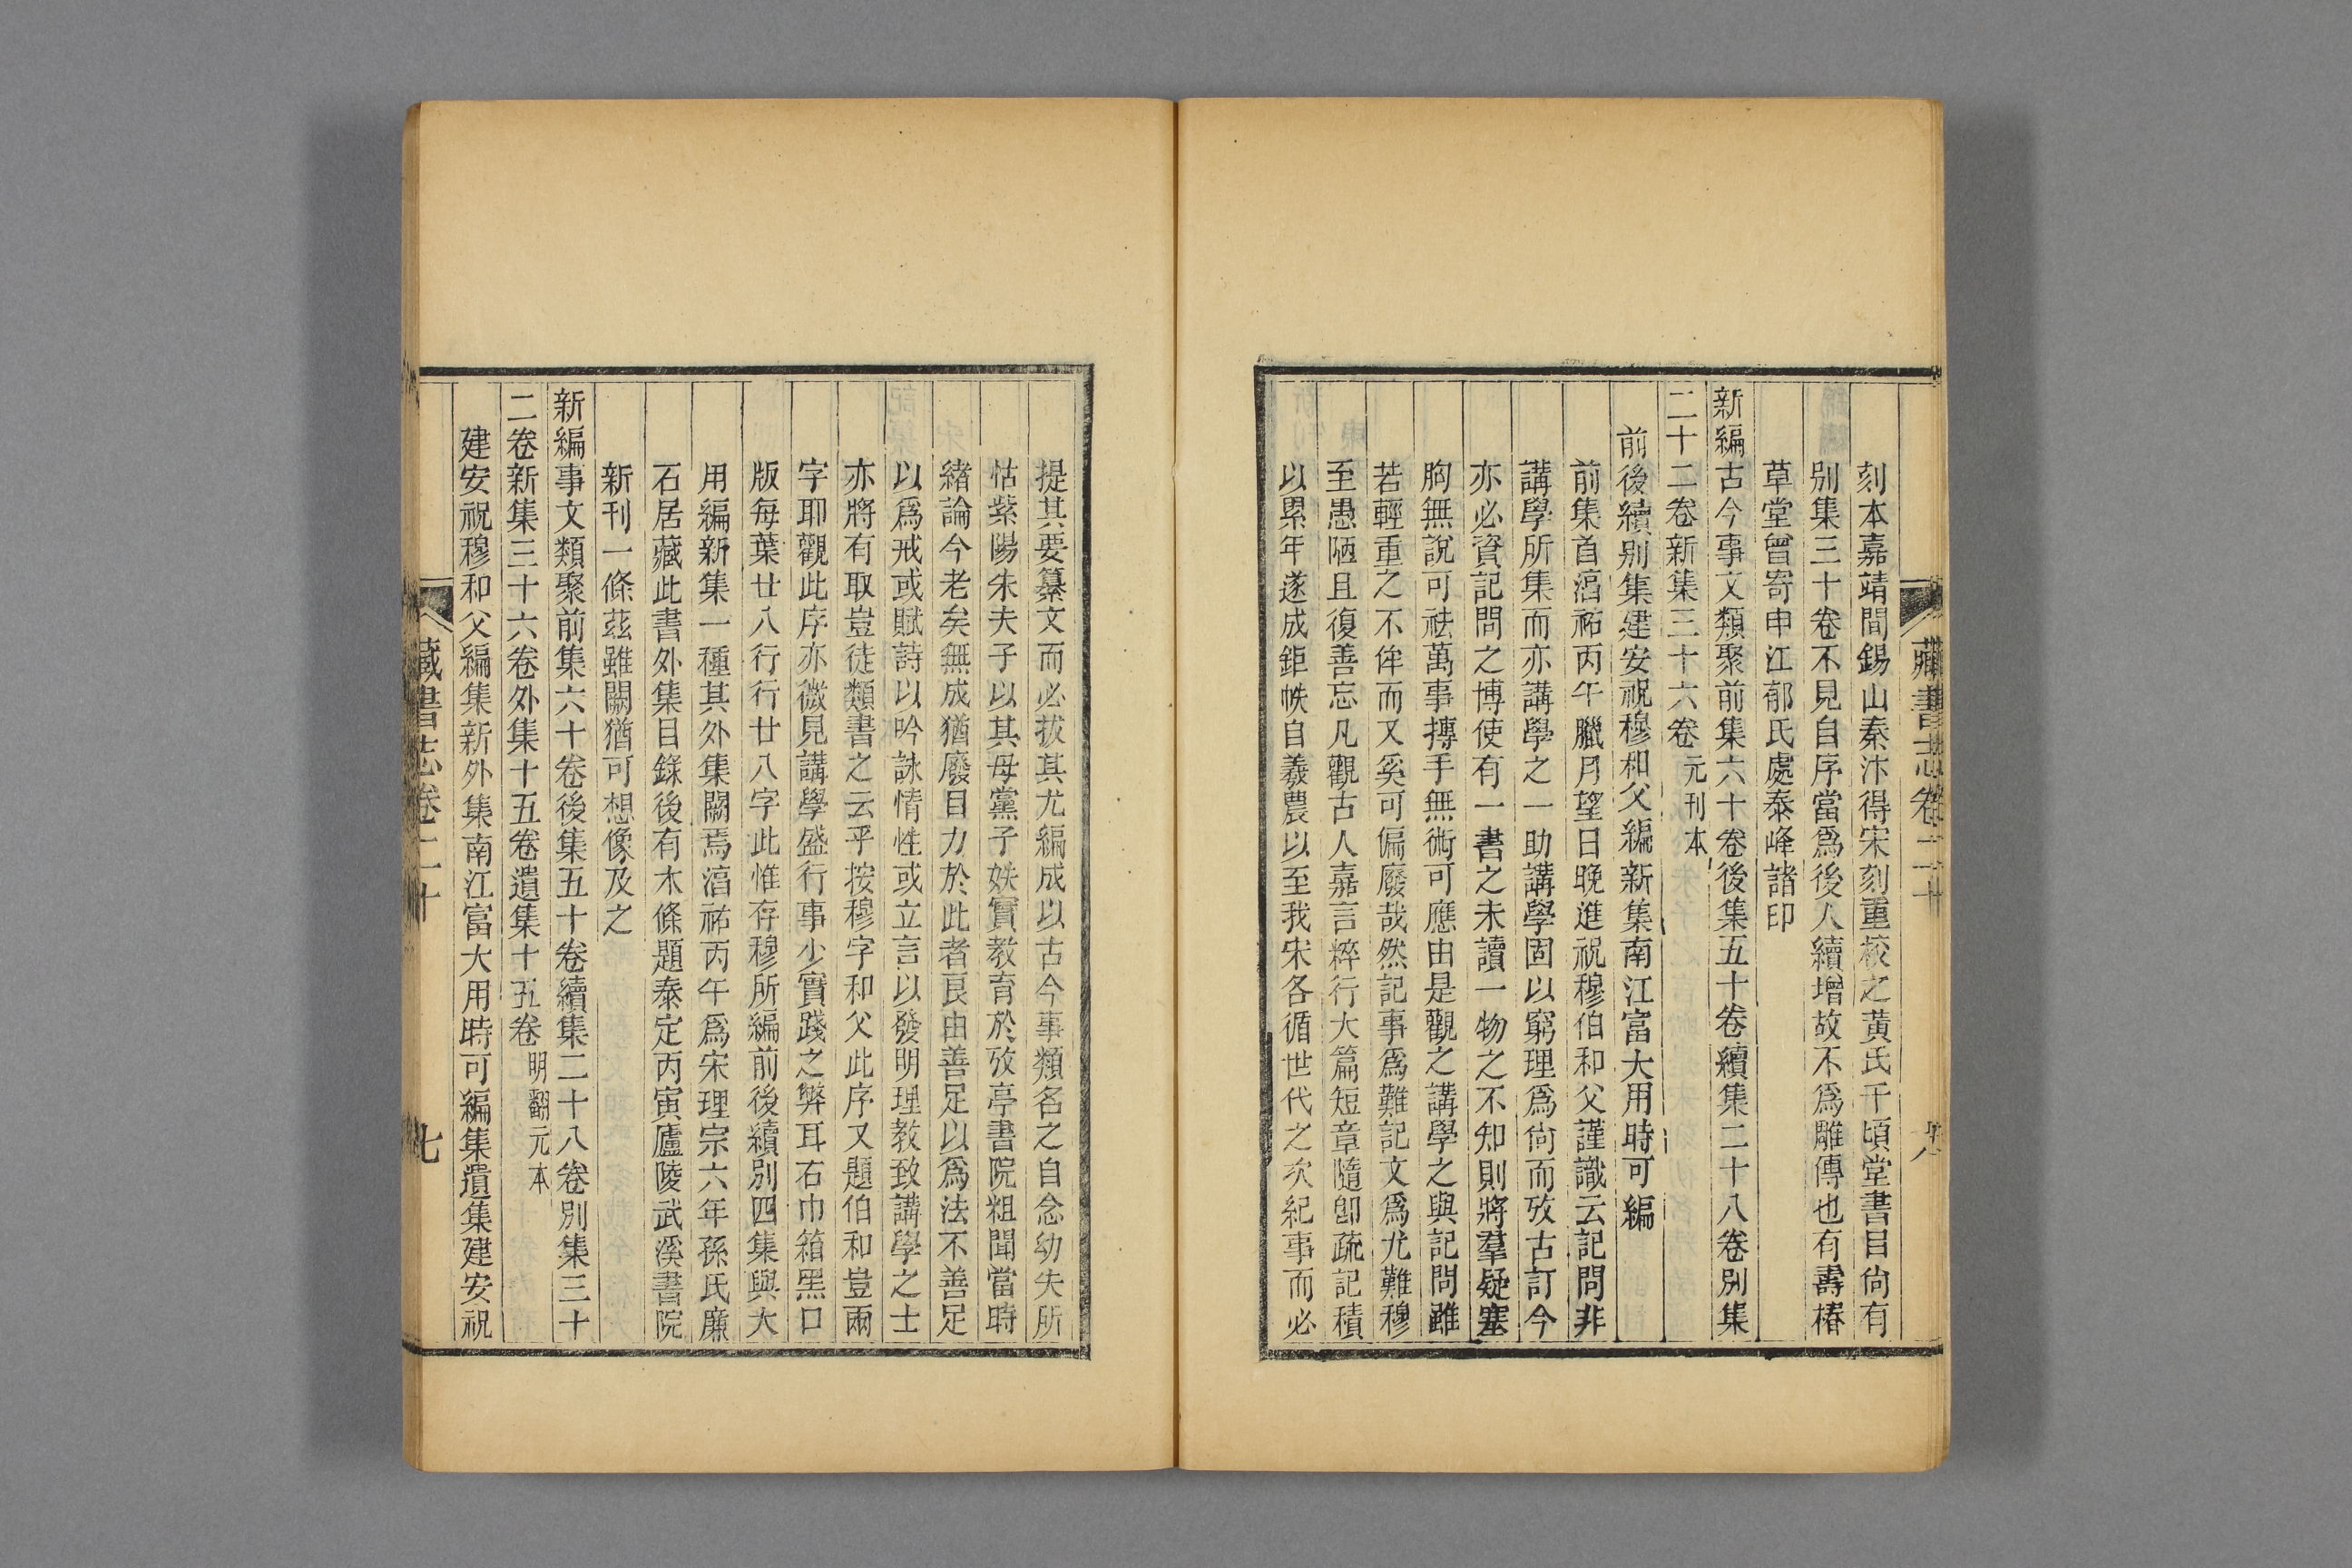 藏書志卷二十
刻本嘉靖間錫山秦汴得宋刻重校之黃氏千頃堂書目尙有
別集三十卷不見自序當爲後人續增故不爲雕傳也有壽椿
草堂曾寄申江郁氏處泰峰諸印
新編古今事文類聚前集六十卷後集五十卷續集二十八卷別集
二十二卷新集三十六卷 元刊本
前後續别集建安祝穆和父編新集南江富大用時可編
前集首㴘祐丙午臘月望日晚進祝穆伯和父謹識云記問非
講學所集而亦講學之一助講學固以窮理爲尙而攷古訂今
亦必資記問之博使有一書之未讀一物之不知則將羣疑塞
胸無說可祛萬事摶手無術可應由是觀之講學之與記問雖
若輕重之不侔而又奚可偏廢哉然記事爲難記文爲尤難穆
至愚陋且復善忘凡觀古人嘉言粹行大篇短章隨卽疏記積
以累年遂成鉅帙自羲農以至我宋各循世代之次紀事而必
提其要纂文而必拔其尤編成以古今事類名之自念幼失所
怙紫陽朱夫子以其母黨子姪實教育於攷亭書院粗聞當時
緒論今老矣無成猶廢目力於此者良由善足以爲法不善足
以爲戒或賦詩以吟詠情性或立言以發明理教致講學之士
亦將有取豈徒類書之云乎按穆字和父此序又題伯和豈兩
字耶觀此序亦微見講學盛行事少實踐之弊耳右巾箱黑口
版每葉廿八行行廿八字此惟存穆所編前後續別四集與大
用編新集一種其外集闕焉㴘祐丙午爲宋理宗六年孫氏廉
石居藏此書外集目錄後有木條題泰定丙寅廬陵武溪書院
新刊一條茲雖闕猶可想像及之
新編事文類聚前集六十卷後集五十卷續集二十八卷別集三十
二卷新集三十六卷外集十五卷遺集十五卷 明翻元本
建安祝穆和父編集新外集南江富大用時可編集遺集建安祝
藏書志卷二十
七